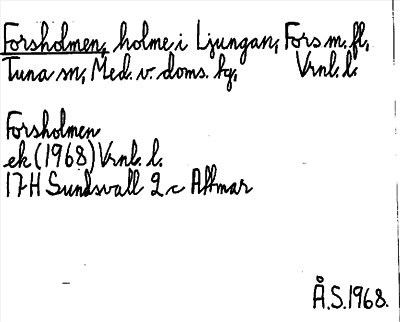 Forsholmen, holme i Ljungan, Fors m. fl,
Tuna sn, Med. v. doms. tg, Vrnl. l.
Forsholmen
ek (1968) Vrnl. l.
17H Sundsvall 2 c Allmar
Å.S. 1968.